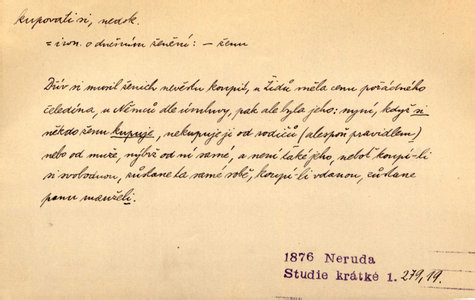 kupovati si, nedok.
= iron. o dnešním ženění: — ženu
Dřív si musil ženich nevěstu koupit, u Židů měla cenu pořádného
čeledína, u Němců dle úmluvy, pak ale byla jeho: nyní, když si
někdo ženu kupuje, nekupuje ji od rodičů (alespoň pravidlem)
nebo od muže, nýbrž od ní samé, a není také jeho, neboť koupí-li
si svobodnou, zůstane ta samé sobě, koupí-li vdanou, zůstane
panu manželi.
1876 Neruda
Studie krátké 1. 279,19.